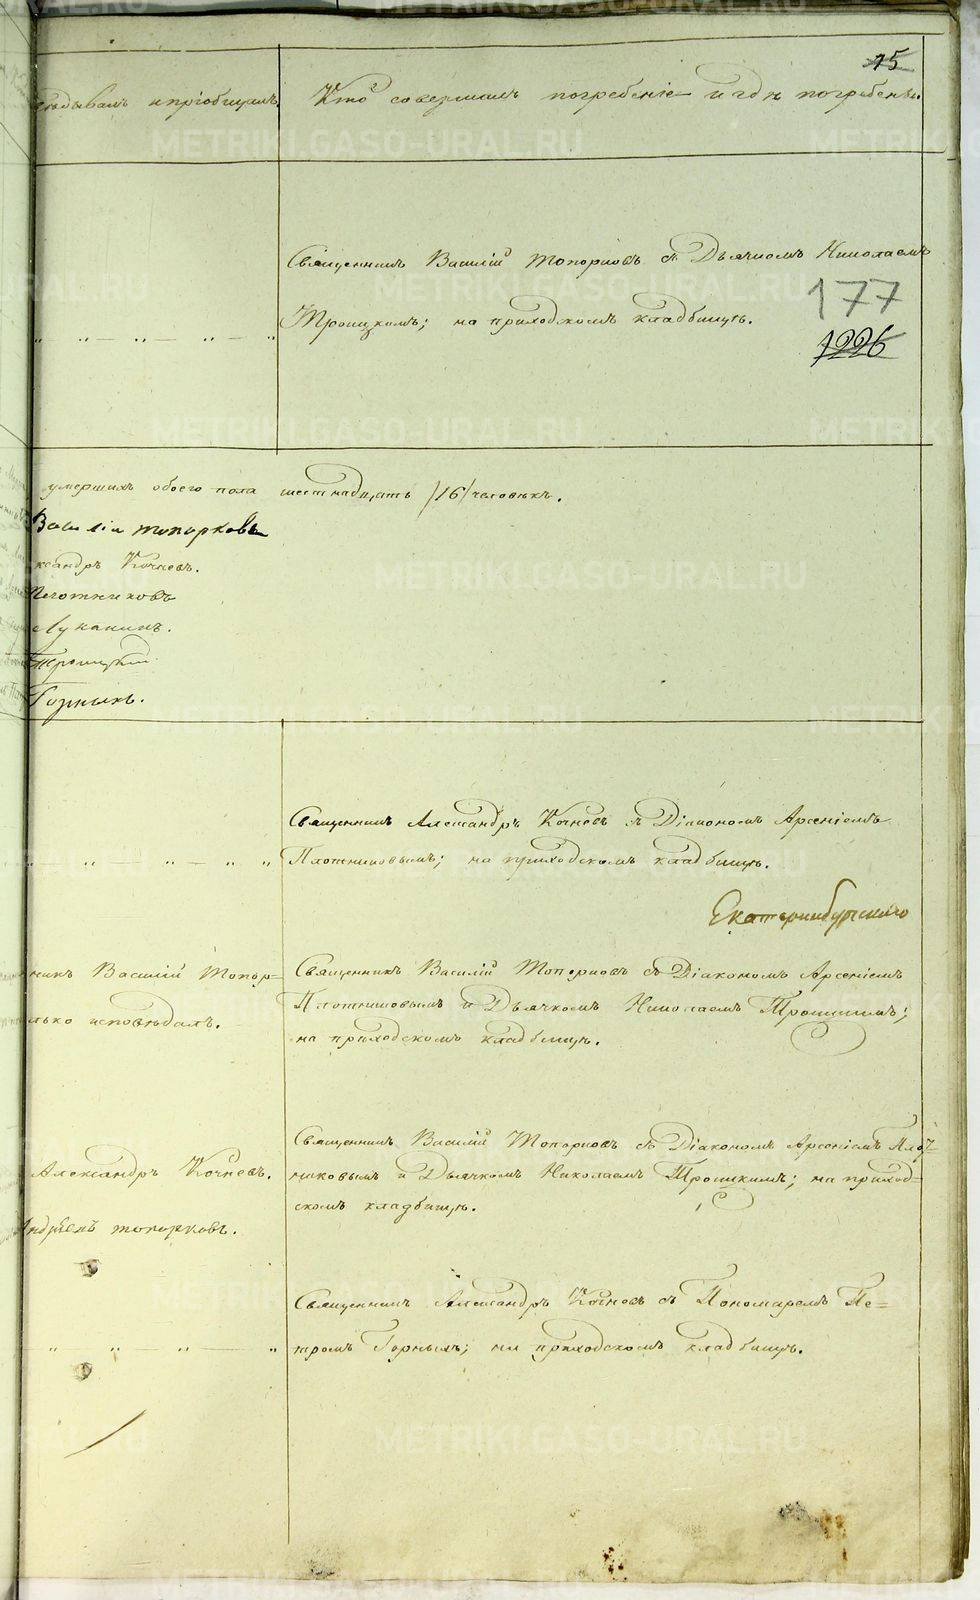 75
Кто совершалъ погребеніе и гдѣ погребены.
исповѣдывалъ и пріобщалъ.
Священникъ Василій Топорковъ съ Дьячкомъ Николаемъ
Троицкомъ; на приходскомъ кладбищѣ.
177
1226
умершихъ обоего пола шестнадцать /16/ человѣкъ.
Василій Топорковъ
ксандръ Кочневъ.
Плотниковъ
Луканинъ.
Троицкій
Горныхъ.
Священникъ Александръ Кочневъ съ Діакономъ Арсеніемъ
Плотниковымъ; на приходскомъ кладбищѣ.
Екатеринбургскаго
никъ Василій Топор-
лько исповѣдалъ.
Священникъ Василій Топорковъ съ Діакономъ Арсеніемъ
Плотниковымъ и Дьячкомъ Николаемъ Троицкимъ;
на приходскомъ кладбищѣ.
Александръ Кочневъ.
Андреевъ Топорковъ.
Священникъ Василій Топорковъ съ Діакономъ Арсеніемъ Плот-
никовымъ и Дьячкомъ Николаемъ Троицкимъ; на приход-
скомъ кладбищѣ.
Священникъ Александръ Кочневъ съ Пономаремъ Пе-
тромъ Горныхъ; на приходскомъ кладбищѣ.
METRIKI.GASO-URAL.RU